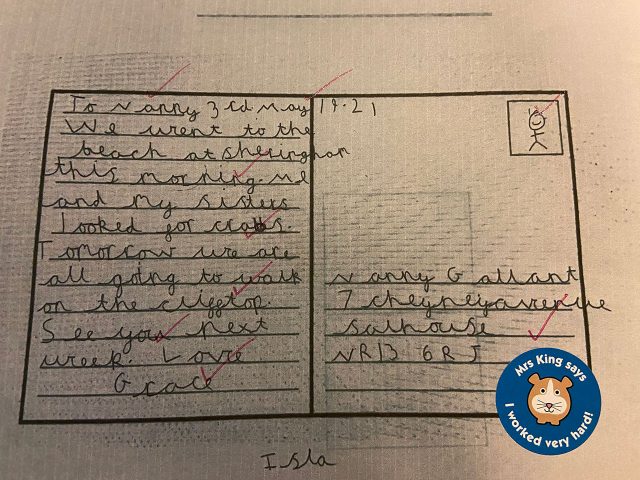 To Nanny 3rd May 19.21
We went to the
beach at sheringham
this morning. Me
and my sisters
looked for crabs.
Tomorrow we are
all going to walk
on the clifftop.
See you next
week. Love
Grace
Nanny Gallant
7 cheyney avenue
salhouse
NR13 6RJ
Mrs King says
I worked very hard!
Isla